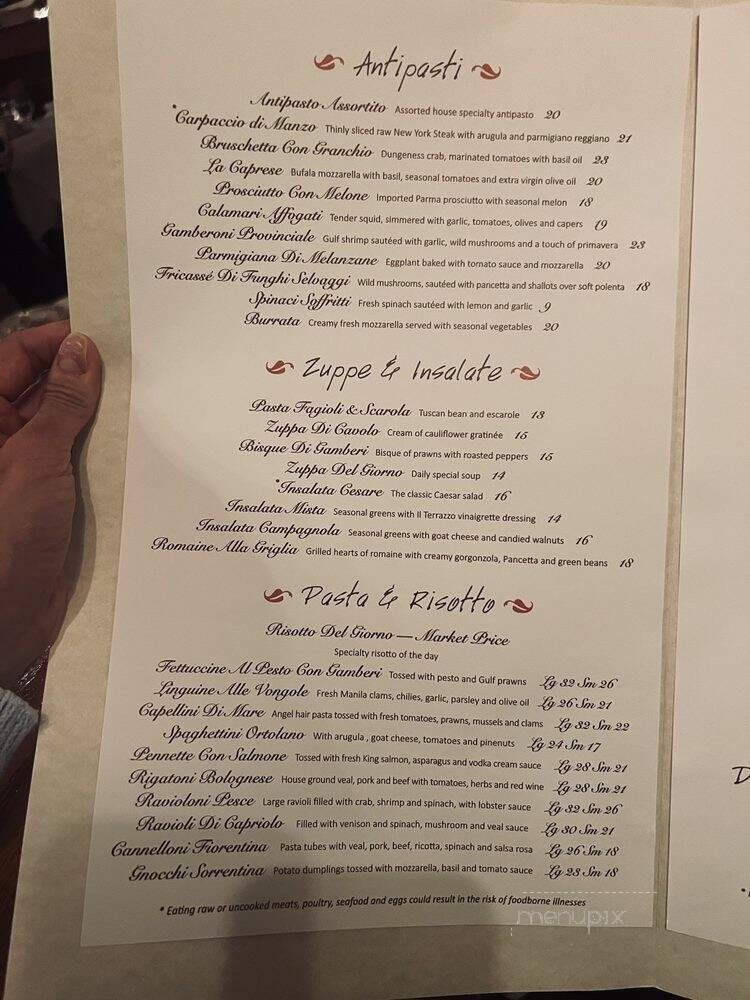 Antipasti
Antipasto Assortito Assorted house specialty antipasto 20
*Carpaccio di Manzo Thinly sliced raw New York Steak with arugula and parmigiano reggiano 21
Bruschetta Con Granchio Dungeness crab, marinated tomatoes with basil oil 23
La Caprese Bufala mozzarella with basil, seasonal tomatoes and extra virgin olive oil 20
Prosciutto Con Melone Imported Parma prosciutto with seasonal melon 18
Calamari Affogati Tender squid, simmered with garlic, tomatoes, olives and capers 19
Gamberoni Provinciale Gulf shrimp sautéed with garlic, wild mushrooms and a touch of primavera 23
Parmigiana Di Melanzane Eggplant baked with tomato sauce and mozzarella 20
Fricassé Di Funghi Selvaggi Wild mushrooms, sautéed with pancetta and shallots over soft polenta 18
Spinaci Soffritti Fresh spinach sautéed with lemon and garlic 9
Burrata Creamy fresh mozzarella served with seasonal vegetables 20
Zuppe & Insalate
Pasta Fagioli & Scarola Tuscan bean and escarole 13
Zuppa Di Cavolo Cream of cauliflower gratinée 15
Bisque Di Gamberi Bisque of prawns with roasted peppers 15
Zuppa Del Giorno Daily special soup 14
*Insalata Cesare The classic Caesar salad 16
Insalata Mista Seasonal greens with Il Terrazzo vinaigrette dressing 14
Insalata Campagnola Seasonal greens with goat cheese and candied walnuts 16
Romaine Alla Griglia Grilled hearts of romaine with creamy gorgonzola, Pancetta and green beans 18
Pasta & Risotto
Risotto Del Giorno — Market Price
Specialty risotto of the day
Fettuccine Al Pesto Con Gamberi Tossed with pesto and Gulf prawns Lg 32 Sm 26
Linguine Alle Vongole Fresh Manila clams, chilies, garlic, parsley and olive oil Lg 26 Sm 21
Capellini Di Mare Angel hair pasta tossed with fresh tomatoes, prawns, mussels and clams Lg 32 Sm 22
Spaghettini Ortolano With arugula , goat cheese, tomatoes and pinenuts Lg 24 Sm 17
Pennette Con Salmone Tossed with fresh King salmon, asparagus and vodka cream sauce Lg 28 Sm 21
Rigatoni Bolognese House ground veal, pork and beef with tomatoes, herbs and red wine Lg 28 Sm 21
Ravioloni Pesce Large ravioli filled with crab, shrimp and spinach, with lobster sauce Lg 32 Sm 26
Ravioli Di Capriolo Filled with venison and spinach, mushroom and veal sauce Lg 30 Sm 21
Cannelloni Fiorentina Pasta tubes with veal, pork, beef, ricotta, spinach and salsa rosa Lg 26 Sm 18
Gnocchi Sorrentina Potato dumplings tossed with mozzarella, basil and tomato sauce Lg 23 Sm 18
* Eating raw or uncooked meats, poultry, seafood and eggs could result in the risk of foodborne illnesses
menupix
D